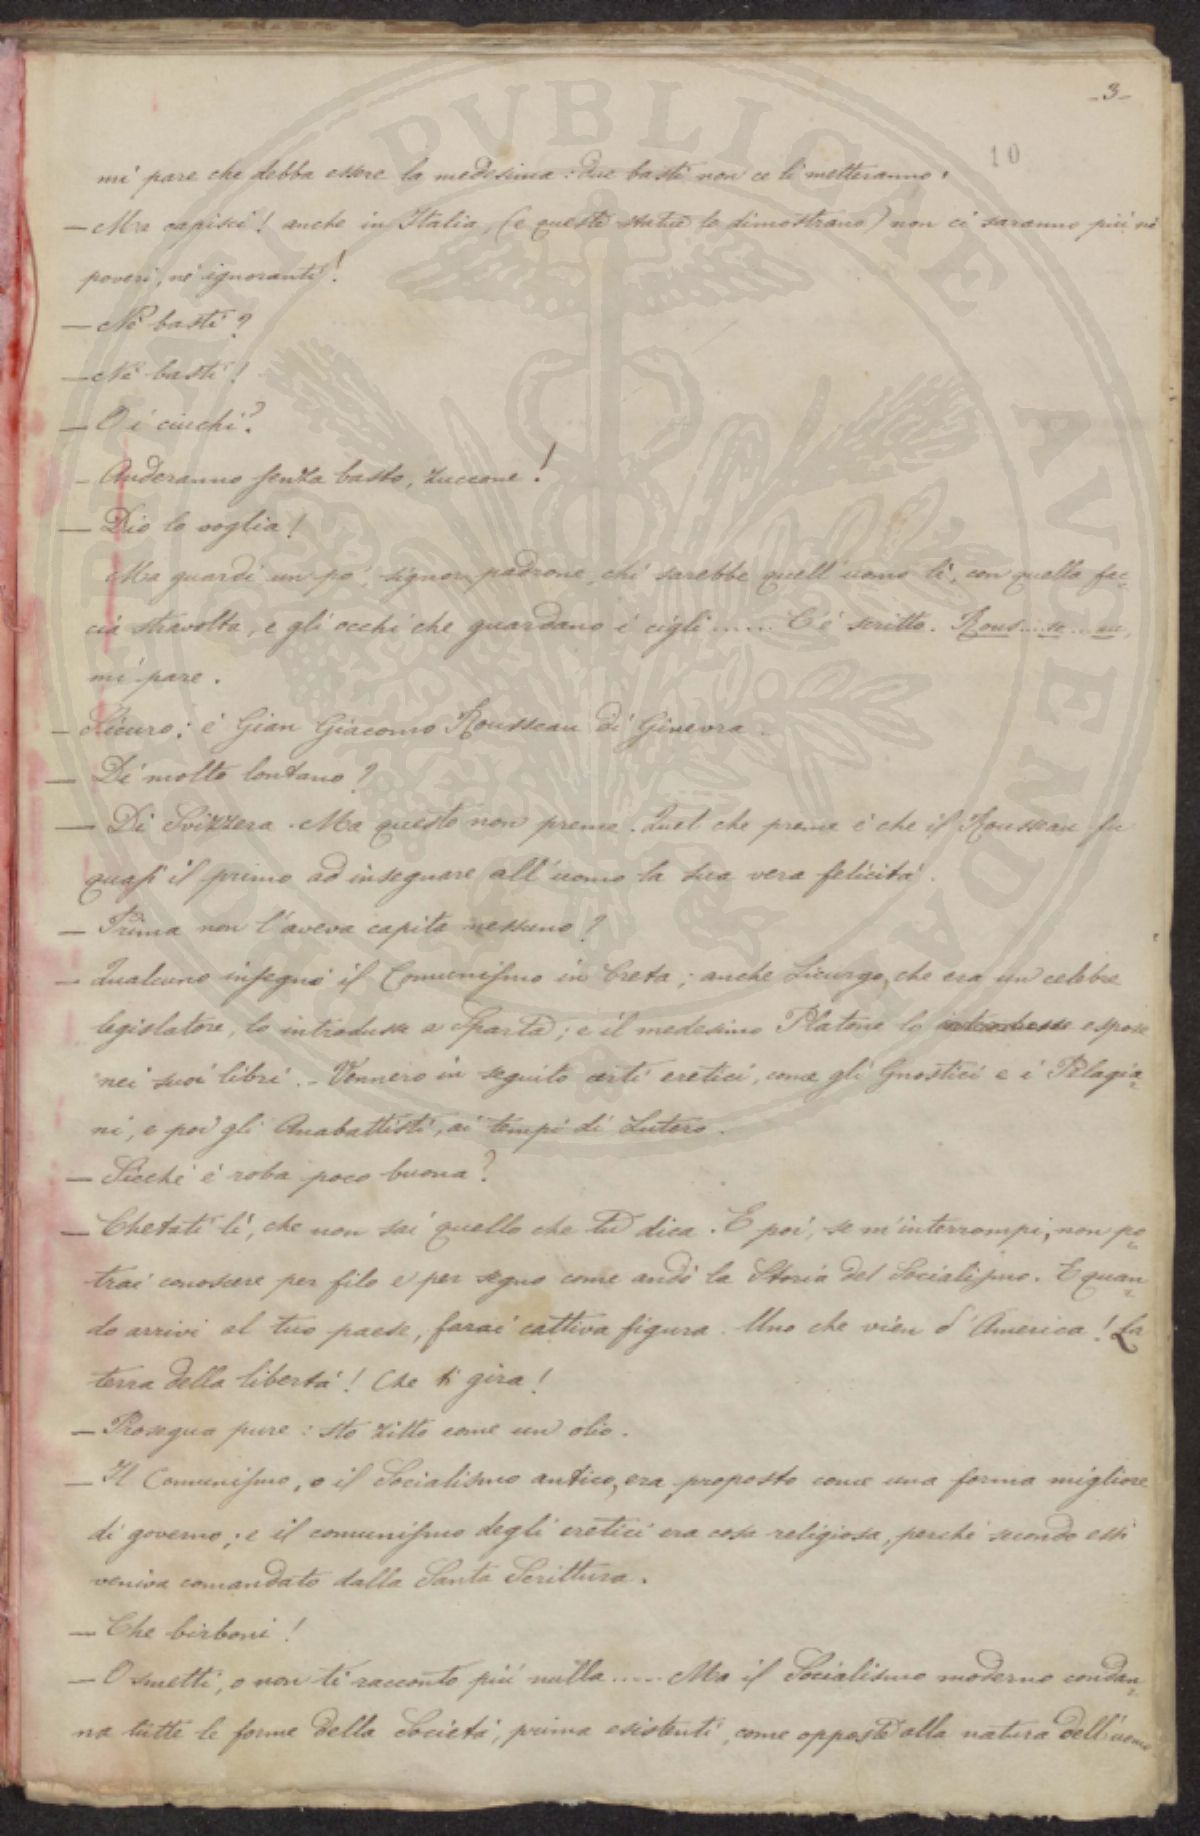 -3-
10
mi pare che debba essere la medesima: due basti non ce li metteranno.
— Ma capisci! anche in Italia, (e queste statue lo dimostrano) non ci saranno più nè
poveri, nè ignoranti!
— Nè basti?
— Nè basti!
— O i ciuchi?
— Anderanno senza basto, zuccone!
— Dio lo voglia!
Ma guardi un po', signor padrone, chi sarebbe quell'uomo lì, con quella fac-
cia stravolta, e gli occhi che guardano i cigli...... C'è scritto. Rous...se...au,
mi pare.
— Sicuro: è Gian Giacomo Rousseau di Ginevra.
— Di molto lontano?
— Di Svizzera. Ma questo non preme. Quel che preme è che il Rousseau fu
quasi il primo ad insegnare all'uomo la sua vera felicità.
— Prima non l'aveva capita nessuno?
— Qualcuno insegnò il Comunismo in Creta; anche Licurgo, che era un celebre
legislatore, lo introdusse a Sparta; e il medesimo Platone lo introdusse espose
nei suoi libri. - Vennero in seguito certi eretici, come gli Gnostici e i Pelagia-
ni, e poi gli Anabattisti, ai tempi di Lutero.
— Sicchè è roba poco buona?
— Chetati lì, che non sai quello che tu dica. E poi, se m'interrompi, non po-
trai conoscere per filo e per segno come andò la Storia del Socialismo. E quan-
do arrivi al tuo paese, farai cattiva figura. Uno che vien d'America! La
terra della libertà! Che ti gira!
— Prosegua pure: sto zitto come un olio.
— Il Comunismo, o il Socialismo antico, era proposto come una forma migliore
di governo; e il comunismo degli eretici era cosa religiosa, perchè secondo essi
veniva comandato dalla Santa Scrittura.
— Che birboni!
— O smetti, o non ti racconto più nulla...... Ma il Socialismo moderno condan-
na tutte le forme della Società, prima esistenti, come opposte alla natura dell'uomo